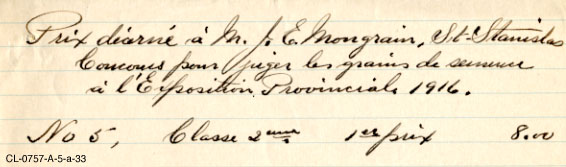 Prix décerné à M. J. E. Mongrain, St-Stanislas
Concours pour juger les grains de semence
à l'Exposition Provinciale 1916.
No 5, Classe 2eme 1er prix 8.00
CL-0757-A-5-a-33